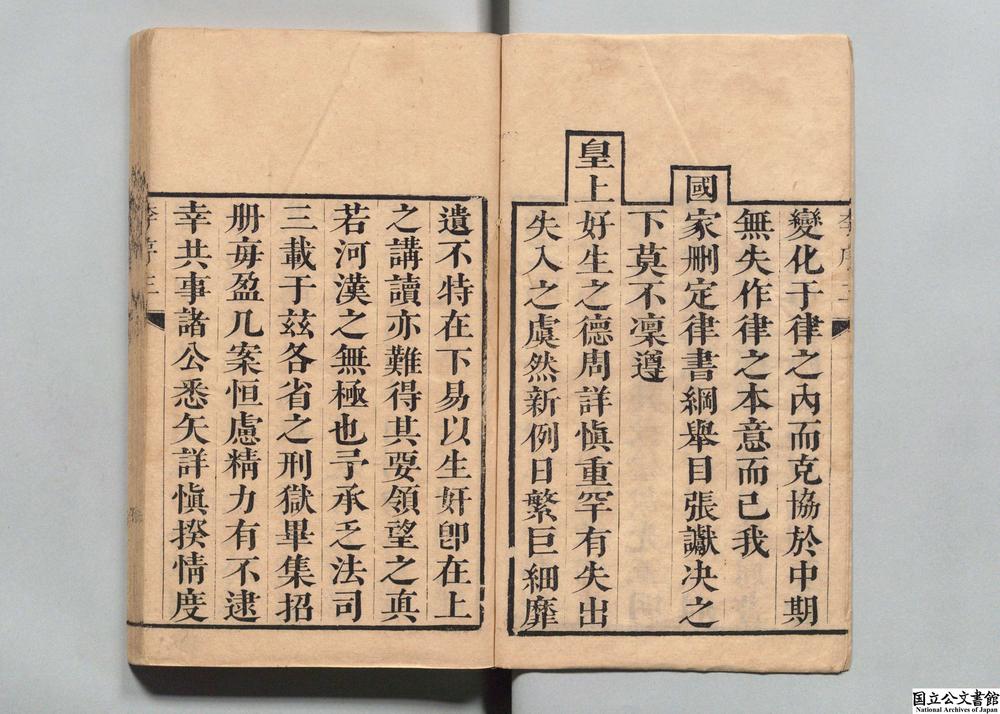 變化于律之內而克協於中期
無失作律之本意而已我
國家刪定律書綱舉目張讞决之
下莫不凜遵
皇上好生之德周詳慎重罕有失出
失入之虞然新例日繁巨細靡
遺不特在下易以生奸卽在上
之講讀亦難得其要領望之真
若河漢之無極也予承乏法司
三載于茲各省之刑獄畢集招
册每盈几案恒慮精力有不逮
幸共事諸公悉矢詳慎揆情度
国立公文書館
National Archives of Japan